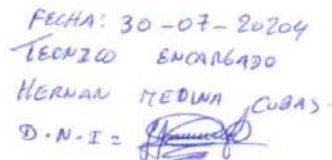 FECHA: 30-07-20204
TECNICO ENCARGADO
HERNAN MEDINA CUBAS.
D.N.I =